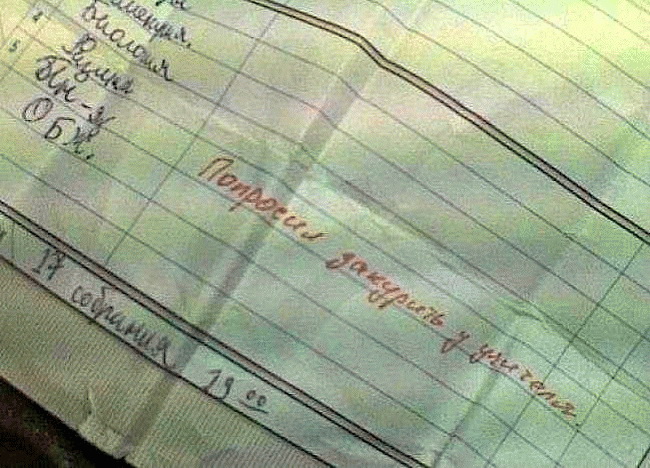 4
биология
5 Физика
Ин-я
ОБЖ.
Попросил закурить у учителя.
17 собрания 19 00